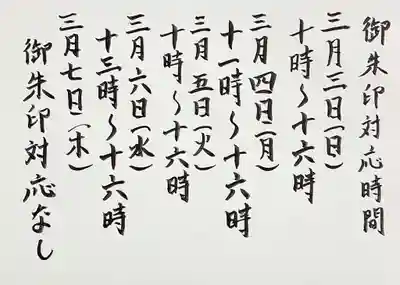 御朱印対応時間
三月三日(日)
十時~十六時
三月四日(月)
十一時~十六時
三月五日(火)
十時~十六時
三月六日(水)
十三時~十六時
三月七日(木)
御朱印対応なし